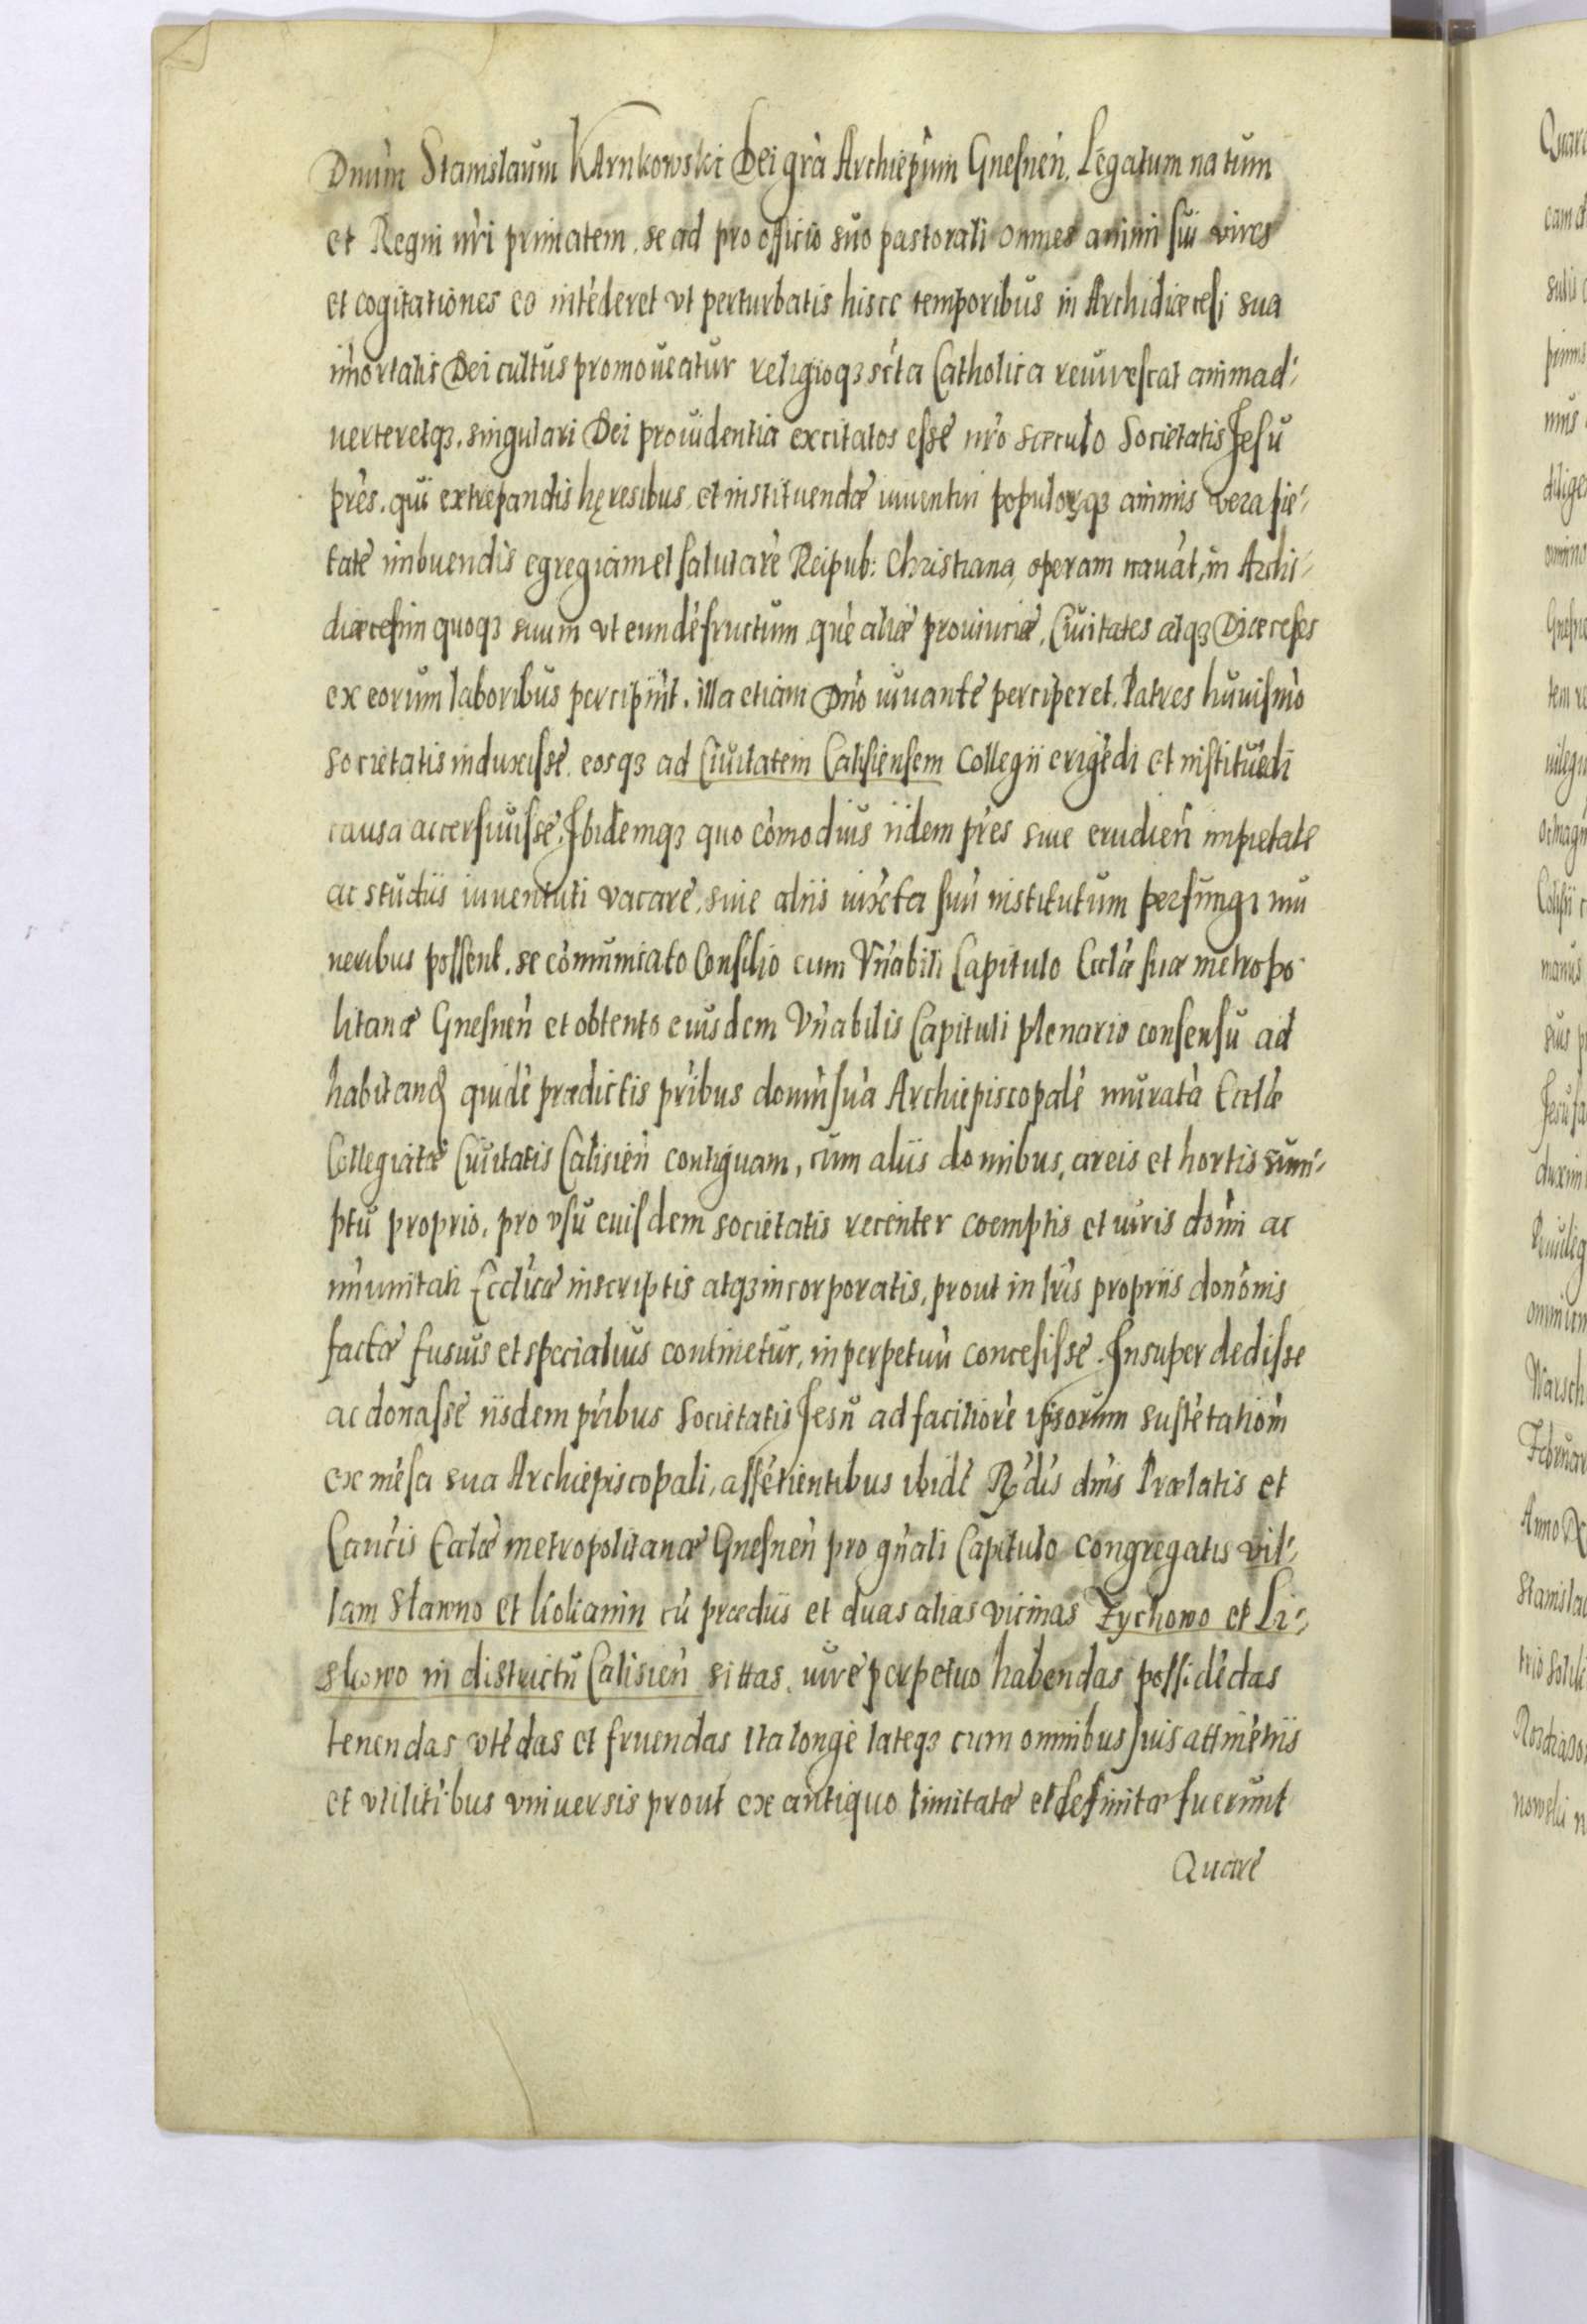 Dnum̀ Stanislaum Karnkowski Dei gra̍ Archiepum̀ Gnesnen̍. Legatum natum
et Regni nr̍i primatem. se ad pro officio suo pastorali omnes animi sui vires
et cogitationes eo inte̍deret vt perturbatis hisce temporibus in Archidiæcesi sua
im̍ortalis Dei cultus promoueatur religioq3 scta̍ Catholica reuirescat animad-
uerteretq3. singulari Dei prouidentia excitatos esse nr̍o sæculo Societatis Jesu
pr̍es. qui extrepandis hęresibus et instituendæ iuuentui populorq3 animis vera pie-
tate imbuendis egregiam et salutare̍ Reipub: Christiana operam naua̍t, in Archi-
diæcesim quoq3 suum vt eunde̍ fructum que̍ aliæ prouinciæ, Ciuitates atq3 Diæceses
ex eorum laboribus percipiu̍t. illa etiam Dn̍o iuuante perciperet. Patres huiusmo̍
Societatis induxisse. eosq3 ad Ciuitatem Calisiensem Collegii erige̍di et institue̍di
causa accersiuisse. Ibidemq3 quo com̍odius iidem pr̍es siue erudien̍ in pietate
ac studiis iuuentuti vacare, siue aliis iuxta suu̍ institutum perfungi mu
neribus possent. se com̍unicato Consilio cum Vn̍abili Capitulo Eccl̍æ suæ metropo-
litanæ Gnesnen̍ et obtento eiusdem Vn̍abilis Capituli plenario consensu ad
habitand quide̍ prædictis pr̍ibus domu̍ sua̍ Archiepiscopale̍ murata̍ Eccl̍æ
Collegiatæ Ciuitatis Calisien̍ contiguam, cum aliis domibus, areis et hortis sum-
ptu proprio, pro vsu eiusdem societatis recenter coemptis et iuris domi̍ ac
im̍unitati Eccl̍icæ inscriptis atq3 incorporatis, prout in lr̍is propriis donon̍is
factæ fusius et specialius continetur, in perpetuu̍ concesisse. Insuper dedisse
ac donasse iisdem pr̍ibus Societatis Jesu ad faciliore̍ ipsorum suste̍tatiom̍
ex me̍sa sua Archiepiscopali, asse̍tientibus ibide̍ R̍dis dn̍is Prælatis et
Canc̍is Eccl̍æ metropolitanæ Gnesnen̍ pro gn̍ali Capitulo congregatis vil-
lam Slawno et kiokanin cu̍ prædiis et duas alias vicinas Zychowo et Li-
skowo in districtu Calisien̍ sittas. iure perpetuo habendas posside̍das
tenendas vte̍das et fruendas ita longe lateq3 cum omnibus suis attine̍tiis
et vtilit̍ibus vniuersis prout ex antiquo limitatæ et definitæ fuerunt
Quare